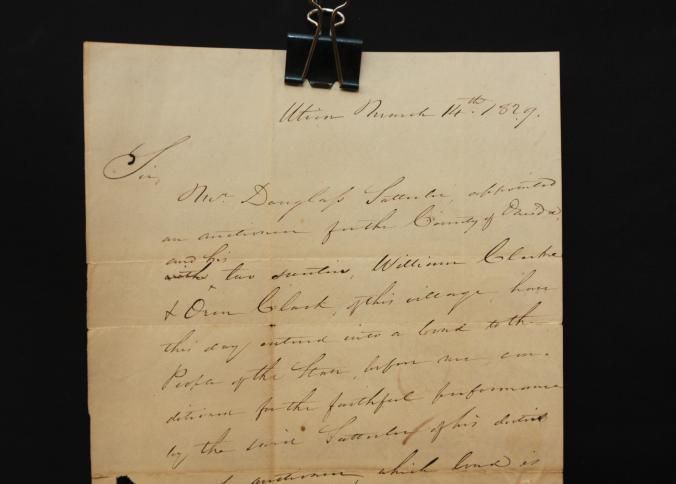 Utica March 14th 1829.
Sir,
Mr. Douglass Satterlee, appointed
an auctioneer for the County of Oneida,
and his
with two sureties, William Clarke
& Oren Clark, of this village, have
this day entered into a bond to the
People of the State, before me, con-
ditioned for the faithful performance
by the said Satterlee of his duties
auctioneer, which bond is